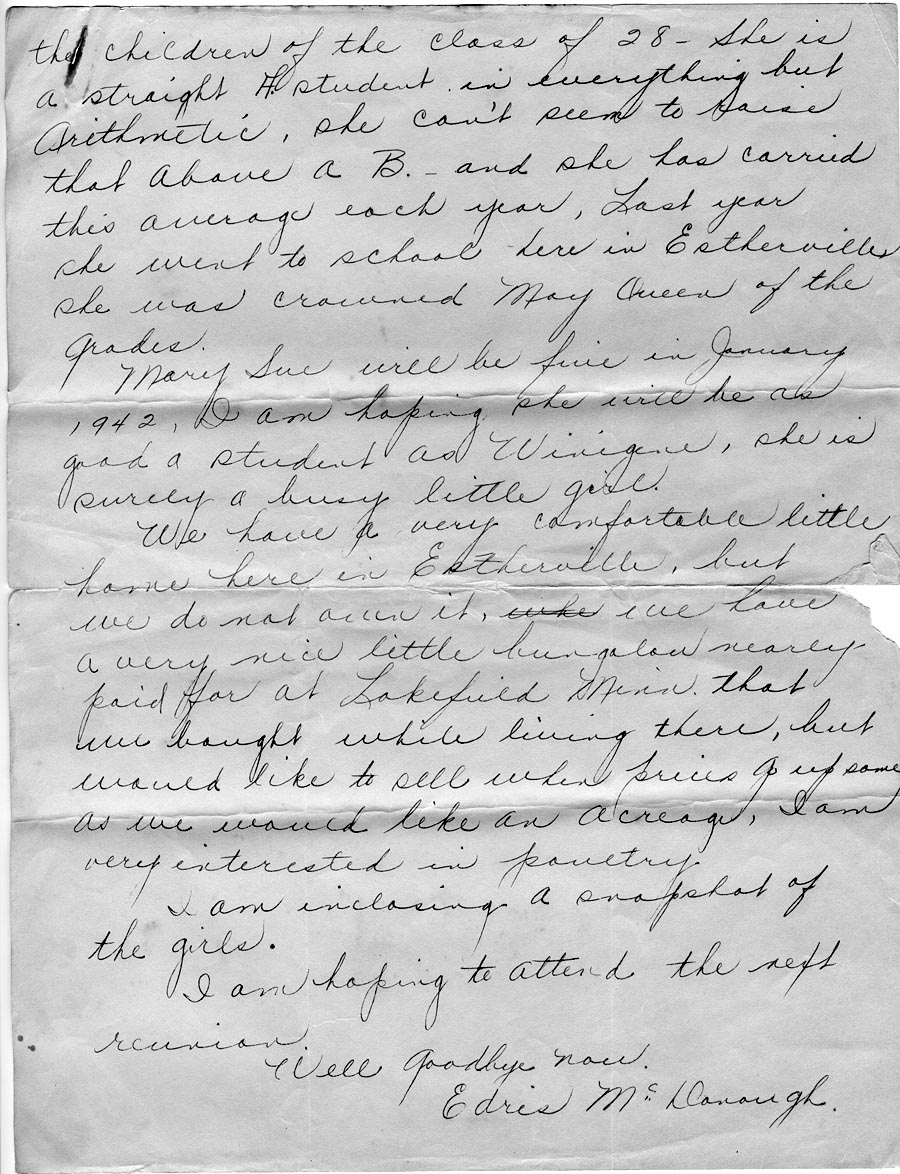 the children of the class of 28 - She is
a straight A. student in everything but
Arithmetic, she can't seem to raise
that above a B. - and she has carried
this average each year, Last year
she went to school here in Estherville
she was crowned May Queen of the
grades.
Mary Sue will be five in January
1942, I am hoping she will be as
good a student as Winigene, she is
surely a busy little girl.
We have a very comfortable little
home here in Estherville, but
we do not own it, whe we have
a very nice little bungalow nearly
paid for at Lakefield Minn. that
we bought while living there, but
would like to sell when prices go up some
as we would like an acreage, I am
very interested in poultry.
I am inclosing a snapshot of
the girls.
I am hoping to attend the next
reunion.
Well Goodbye now.
Edris McDonough.